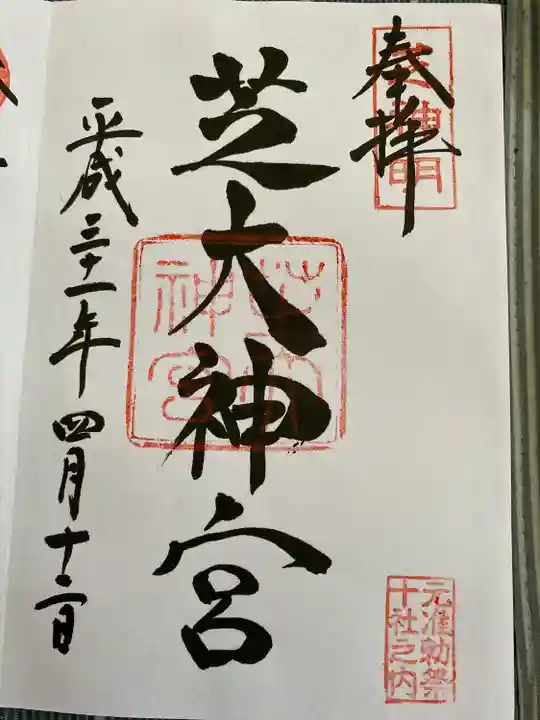 奉拝
芝神明
芝大神宮
芝大神宮
平成三十一年四月十二日
元准勅祭
十社之内